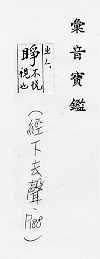 彙音寶鑑
睜 不悅視也
(經下去聲, P188)